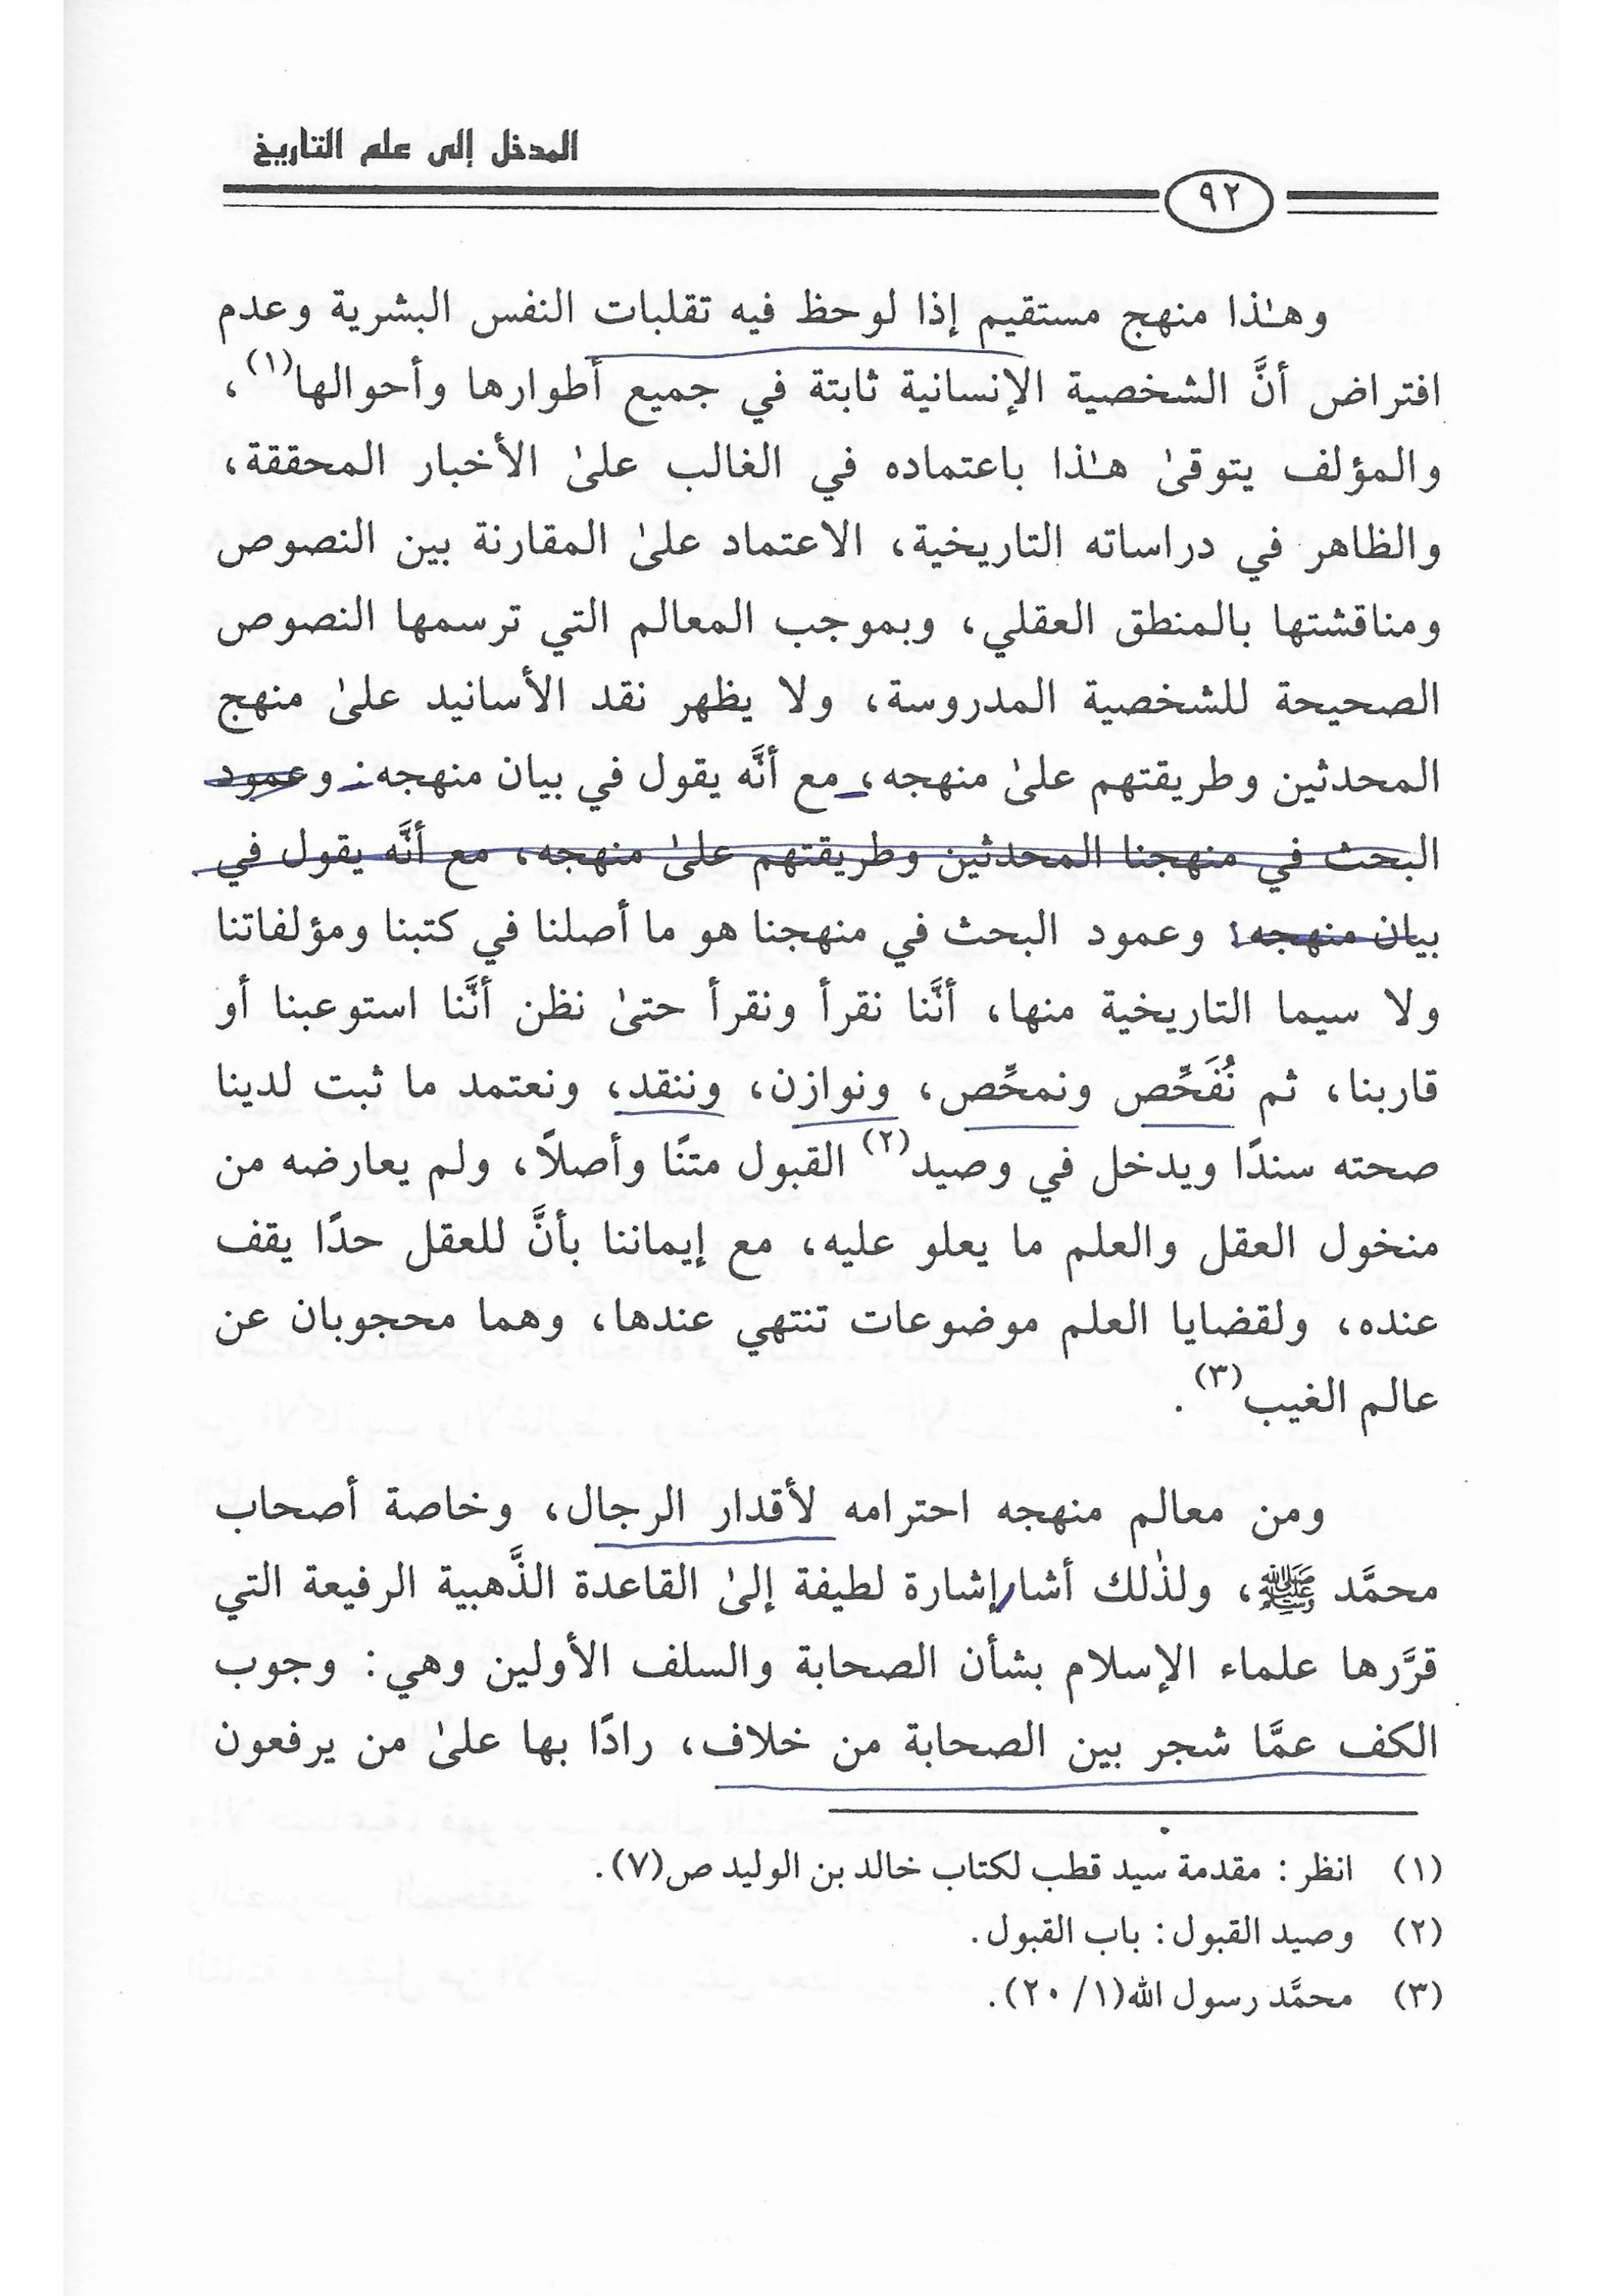 المدخل إلى علم التاريخ
٩٢
وهـٰذا منهج مستقيم إذا لوحظ فيه تقلبات النفس البشرية وعدم
افتراض أنَّ الشخصية الإنسانية ثابتة في جميع أطوارها وأحوالها(١)،
والمؤلف يتوقىٰ هـٰذا باعتماده في الغالب علىٰ الأخبار المحققة،
والظاهر في دراساته التاريخية، الاعتماد علىٰ المقارنة بين النصوص
ومناقشتها بالمنطق العقلي، وبموجب المعالم التي ترسمها النصوص
الصحيحة للشخصية المدروسة، ولا يظهر نقد الأسانيد علىٰ منهج
المحدثين وطريقتهم علىٰ منهجه، مع أنَّه يقول في بيان منهجه: وعمود
البحث في منهجنا المحدثين وطريقتهم علىٰ منهجه، مع أنَّه يقول في
بيان منهجه: وعمود البحث في منهجنا هو ما أصلنا في كتبنا ومؤلفاتنا
ولا سيما التاريخية منها، أنَّنا نقرأ ونقرأ حتىٰ نظن أنَّنا استوعبنا أو
قاربنا، ثم نُفَحِّص ونمحِّص، ونوازن، وننقد، ونعتمد ما ثبت لدينا
صحته سندًا ويدخل في وصيد(٢) القبول متنًا وأصلاً، ولم يعارضه من
منخول العقل والعلم ما يعلو عليه، مع إيماننا بأنَّ للعقل حدًا يقف
عنده، ولقضايا العلم موضوعات تنتهي عندها، وهما محجوبان عن
عالم الغيب(٣).
ومن معالم منهجه احترامه لأقدار الرجال، وخاصة أصحاب
محمَّد ﷺ، ولذٰلك أشار إشارة لطيفة إلىٰ القاعدة الذَّهبية الرفيعة التي
قرَّرها علماء الإسلام بشأن الصحابة والسلف الأولين وهي: وجوب
الكف عمَّا شجر بين الصحابة من خلاف، رادًا بها علىٰ من يرفعون
(١) انظر: مقدمة سيد قطب لكتاب خالد بن الوليد ص(٧).
(٢) وصيد القبول: باب القبول.
(٣) محمَّد رسول الله(١/ ٢٠).